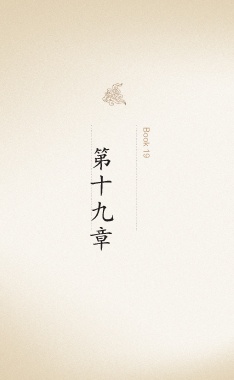 Book 19
第十九章